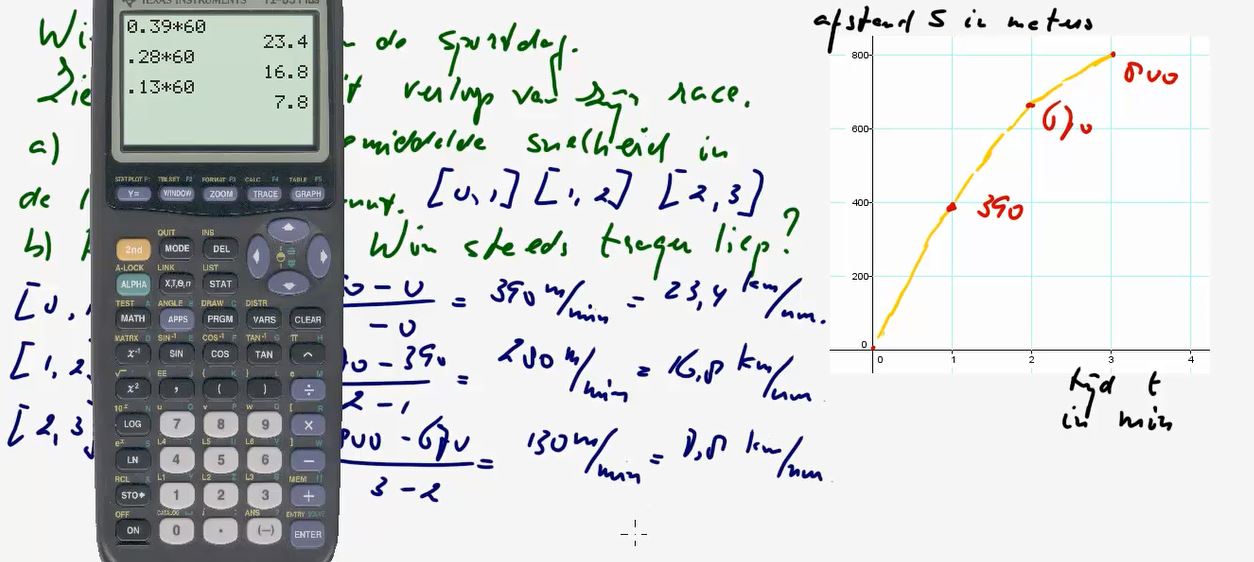 TEXAS INSTRUMENTS TI-83 Plus
0.39*60
23.4
.28*60
16.8
.13*60
7.8
STAT PLOT F1 TBLSET F2 FORMAT F3 CALC F4 TABLE F5
Y= WINDOW ZOOM TRACE GRAPH
QUIT INS
2nd MODE DEL
A-LOCK LINK LIST
ALPHA X,T,Θ,n STAT
TEST A ANGLE B DRAW C DISTR
MATH APPS PRGM VARS CLEAR
MATRX D SIN⁻¹ E COS⁻¹ F TAN⁻¹ G π H
x⁻¹ SIN COS TAN ^
√ I EE J { K } L e M
x² , ( ) ÷
10ˣ N u O v P w Q [ R
LOG 7 8 9 ×
eˣ S L4 T L5 U L6 V ] W
LN 4 5 6 −
RCL X L1 Y L2 Z L3 θ MEM "
STO▸ 1 2 3 +
OFF CATALOG i : ANS ? ENTRY SOLVE
ON 0 . (−) ENTER
Wi de sportdag.
Zie t verloop van zijn race.
a) emiddelde snelheid in
de nut. [0,1] [1,2] [2,3]
b) Wim steeds trager liep?
[0, 0 − 0 / − 0 = 390 m/min = 23,4 km/uur.
[1, 2 0 − 390 / 2 − 1 = 280 m/min = 16,8 km/uur
[2, 3 800 − 670 / 3 − 2 = 130 m/min = 7,8 km/uur
afstand s in meters
800
600
400
200
0
0 1 2 3 4
800
670
390
tijd t
in min